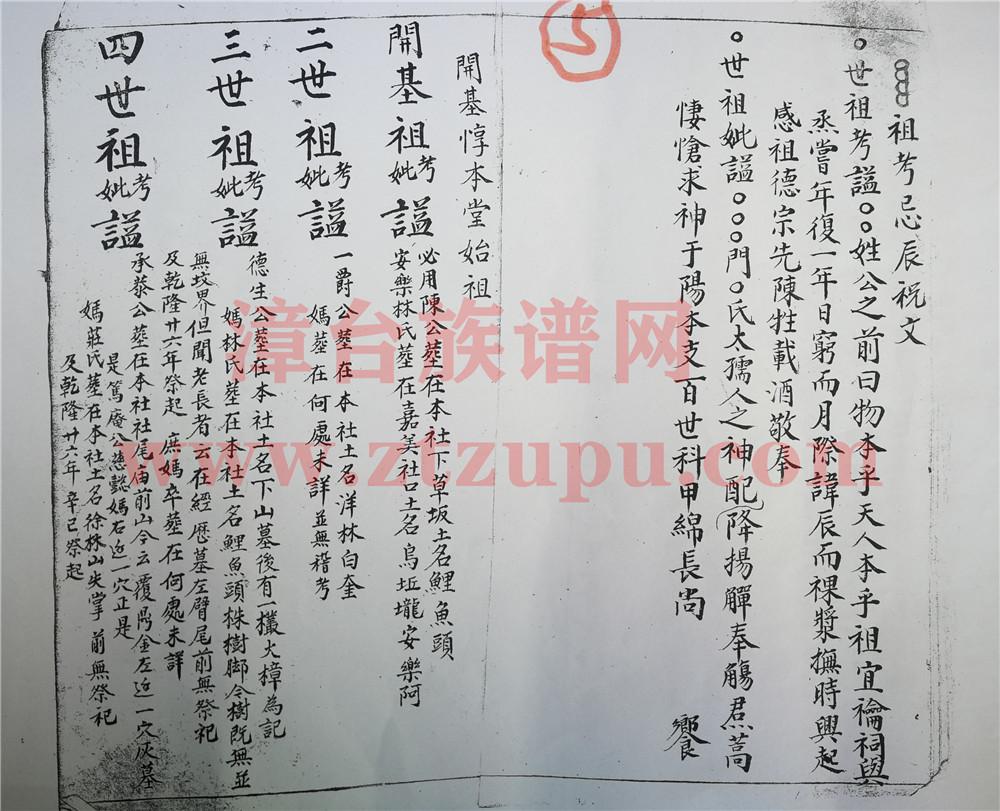 祖考忌辰祝文
○世祖考諡○○姓公之前曰物本乎天人本乎祖宜禴祠與
烝嘗年復一年日窮而月際諱辰而祼漿撫時興起
感祖德宗先陳牲載酒敬奉
○世祖妣諡○○○門○氏太孺人之神配降揚觶奉觴焄蒿
悽愴求神于陽本支百世科甲綿長尚 饗
5
開基惇本堂始祖
開基祖考妣諡
必用陳公葬在本社下草坂土名鯉魚頭
安樂林氏葬在嘉美社口土名烏坵壠安樂阿
二世祖考妣諡
一爵公葬在本社土名洋林白奎
媽葬在何處未詳並無稽考
三世祖考妣諡
德生公葬在本社土名下山墓後有一欉大樟為記
媽林氏葬在本社土名鯉魚頭株樹腳令樹既無並
無坟界但聞老長者云在經歷墓左臂尾前無祭祀
及乾隆廿六年祭起 庶媽卒葬在何處未詳
四世祖考妣諡
承恭公葬在本社社尾庙前山今云覆鼎金左邊一穴灰墓
是篤庵公慈懿媽右邊一穴正是
媽莊氏葬在本社土名徐林山失掌前無祭祀
及乾隆廿六年辛巳祭起
漳台族谱网
www.ztzupu.com